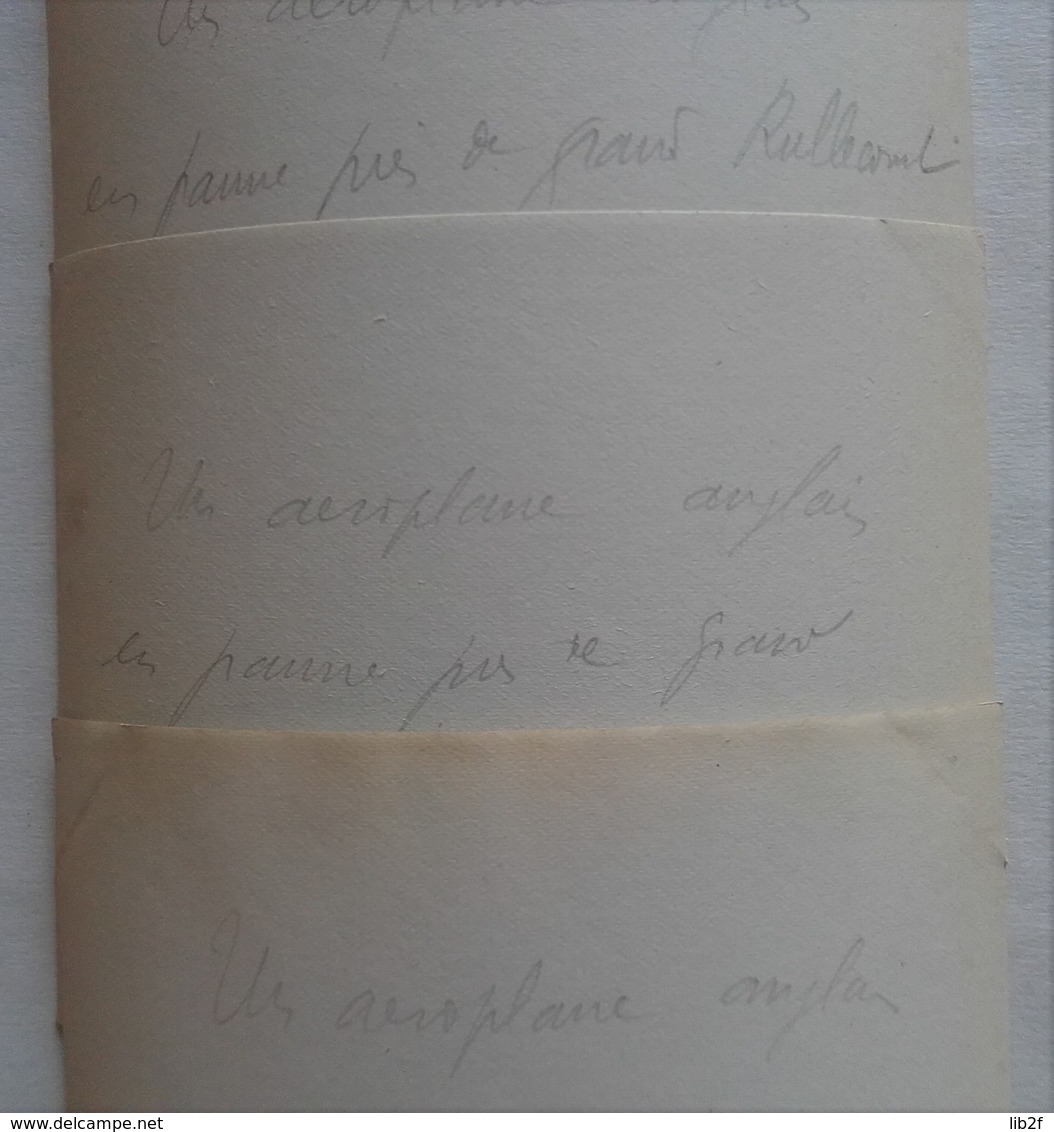 Un aeroplane anglais
en panne près de grand Rullecourt
Un aeroplane anglais
en panne pres de grand
Un aeroplane anglais
delcampe.net
lib2f